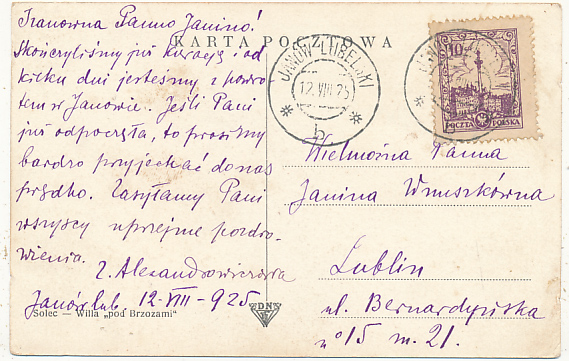 Szanowna Panno Janino!
Skończyliśmy już kurację i od
kilku dni jesteśmy z powro
tem w Janowie. Jeśli Pani
już odpoczęła, to prosimy
bardzo przyjechać do nas
prędko. Zasyłamy Pani
wszyscy uprzejme pozdro-
wienia.
Z. Alexandrowiczowa
Janów lub. 12-VIII-925
Solec — Willa „pod Brzozami”
KARTA POCZTOWA
JANÓW LUBELSKI
12 VIII 25
* b *
10
POCZTA POLSKA
Wielmożna Panna
Janina Wnuszkówna
Lublin
ul. Bernardyńska
nº 15 m. 21.